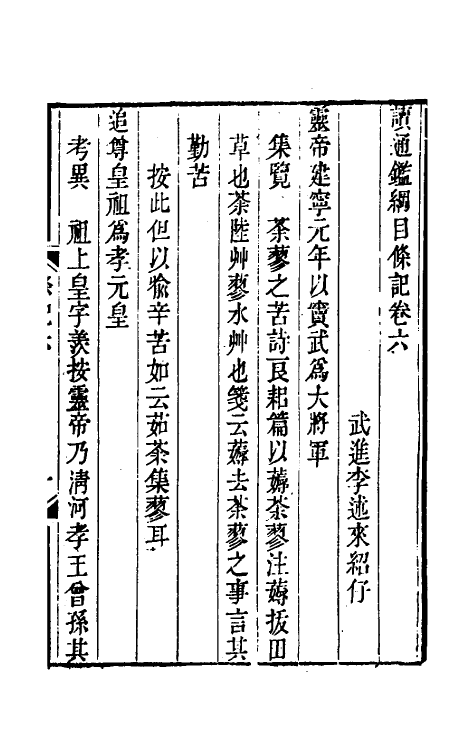 讀通鑑綱目條記卷六
武進李述來紹仔
靈帝建寧元年以竇武爲大將軍
集覽　荼蓼之苦詩良耜篇以薅荼蓼注薅拔田
草也荼陸艸蓼水艸也箋云薅去荼蓼之事言其
勤苦
按此但以喩辛苦如云茹荼集蓼耳
追尊皇祖爲孝元皇
考異　祖上皇字羨按靈帝乃淸河孝王曾孫其